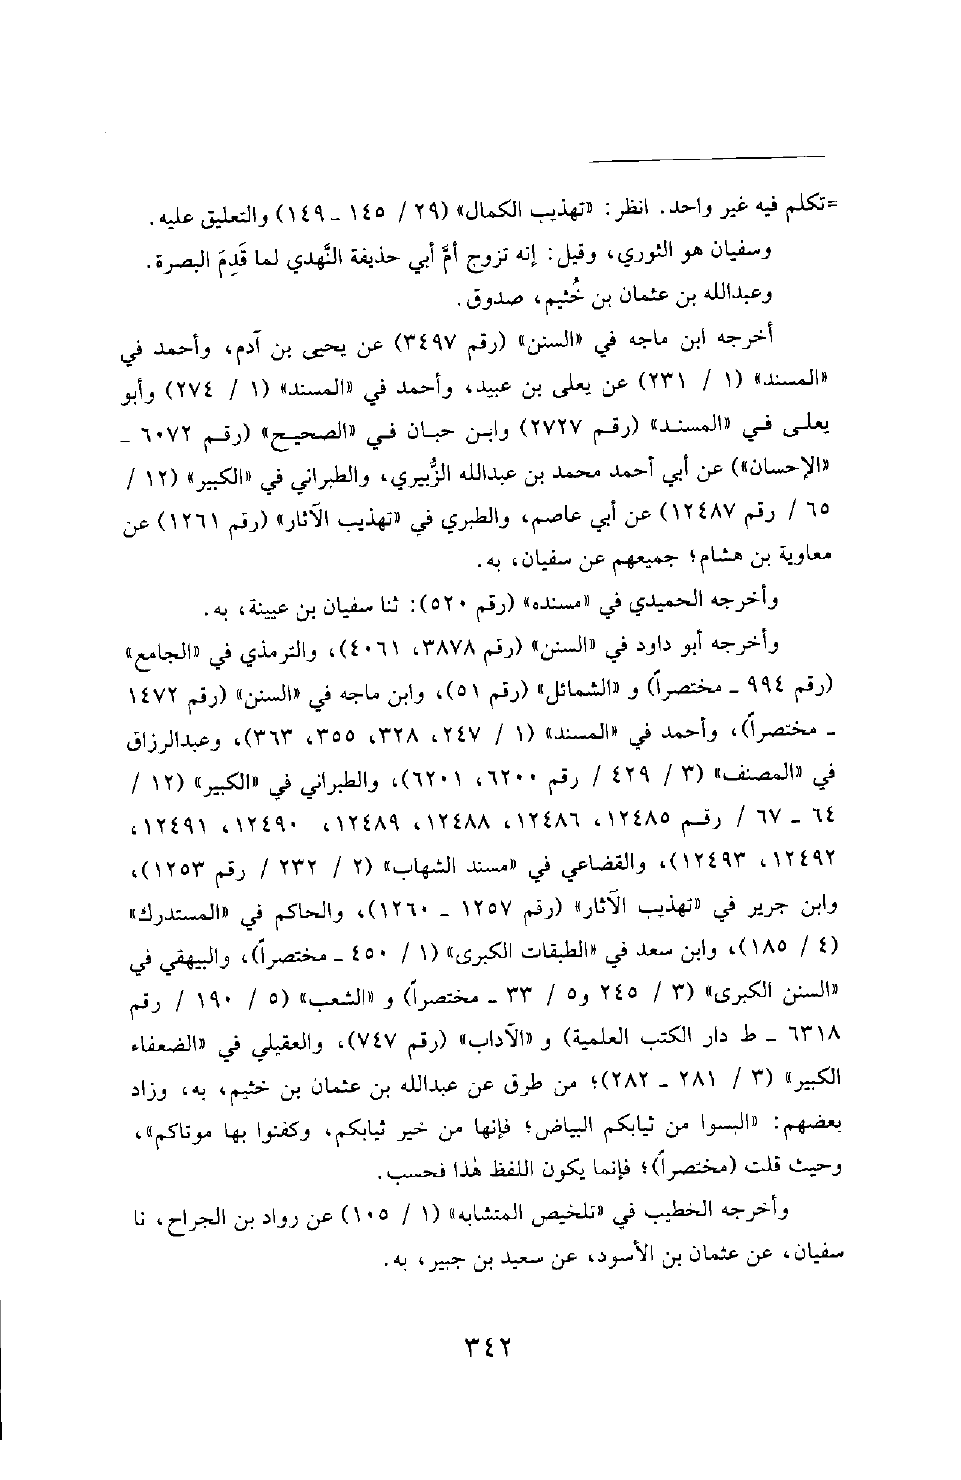 =تكلم فيه غير واحد. انظر: «تهذيب الكمال» (٢٩ / ١٤٥ - ١٤٩) والتعليق عليه.
وسفيان هو الثوري، وقيل: إنه تزوج أمَّ أبي حذيفة النَّهدي لما قَدِمَ البصرة.
وعبدالله بن عثمان بن خُثيم، صدوق.
أخرجه ابن ماجه في «السنن» (رقم ٣٤٩٧) عن يحيى بن آدم، وأحمد في
«المسند» (١ / ٢٣١) عن يعلى بن عبيد، وأحمد في «المسند» (١ / ٢٧٤) وأبو
يعلى في «المسند» (رقم ٢٧٢٧) وابن حبان في «الصحيح» (رقم ٦٠٧٢ -
«الإحسان») عن أبي أحمد محمد بن عبدالله الزُّبيري، والطبراني في «الكبير» (١٢ /
٦٥ / رقم ١٢٤٨٧) عن أبي عاصم، والطبري في «تهذيب الآثار» (رقم ١٢٦١) عن
معاوية بن هشام؛ جميعهم عن سفيان، به.
وأخرجه الحميدي في «مسنده» (رقم ٥٢٠): ثنا سفيان بن عيينة، به.
وأخرجه أبو داود في «السنن» (رقم ٣٨٧٨، ٤٠٦١)، والترمذي في «الجامع»
(رقم ٩٩٤ - مختصراً) و «الشمائل» (رقم ٥١)، وابن ماجه في «السنن» (رقم ١٤٧٢
- مختصراً)، وأحمد في «المسند» (١ / ٢٤٧، ٣٢٨، ٣٥٥، ٣٦٣)، وعبدالرزاق
في «المصنف» (٣ / ٤٢٩ / رقم ٦٢٠٠، ٦٢٠١)، والطبراني في «الكبير» (١٢ /
٦٤ - ٦٧ / رقم ١٢٤٨٥، ١٢٤٨٦، ١٢٤٨٨، ١٢٤٨٩، ١٢٤٩٠، ١٢٤٩١،
١٢٤٩٢، ١٢٤٩٣)، والقضاعي في «مسند الشهاب» (٢ / ٢٣٢ / رقم ١٢٥٣)،
وابن جرير في «تهذيب الآثار» (رقم ١٢٥٧ - ١٢٦٠)، والحاكم في «المستدرك»
(٤ / ١٨٥)، وابن سعد في «الطبقات الكبرى» (١ / ٤٥٠ - مختصراً)، والبيهقي في
«السنن الكبرى» (٣ / ٢٤٥ و٥ / ٣٣ - مختصراً) و «الشعب» (٥ / ١٩٠ / رقم
٦٣١٨ - ط دار الكتب العلمية) و «الآداب» (رقم ٧٤٧)، والعقيلي في «الضعفاء
الكبير» (٣ / ٢٨١ - ٢٨٢)؛ من طرق عن عبدالله بن عثمان بن خثيم، به، وزاد
بعضهم: «البسوا من ثيابكم البياض؛ فإنها من خير ثيابكم، وكفنوا بها موتاكم»،
وحيث قلت (مختصراً)؛ فإنما يكون اللفظ هٰذا فحسب.
وأخرجه الخطيب في «تلخيص المتشابه» (١ / ١٠٥) عن رواد بن الجراح، نا
سفيان، عن عثمان بن الأسود، عن سعيد بن جبير، به.
٣٤٢